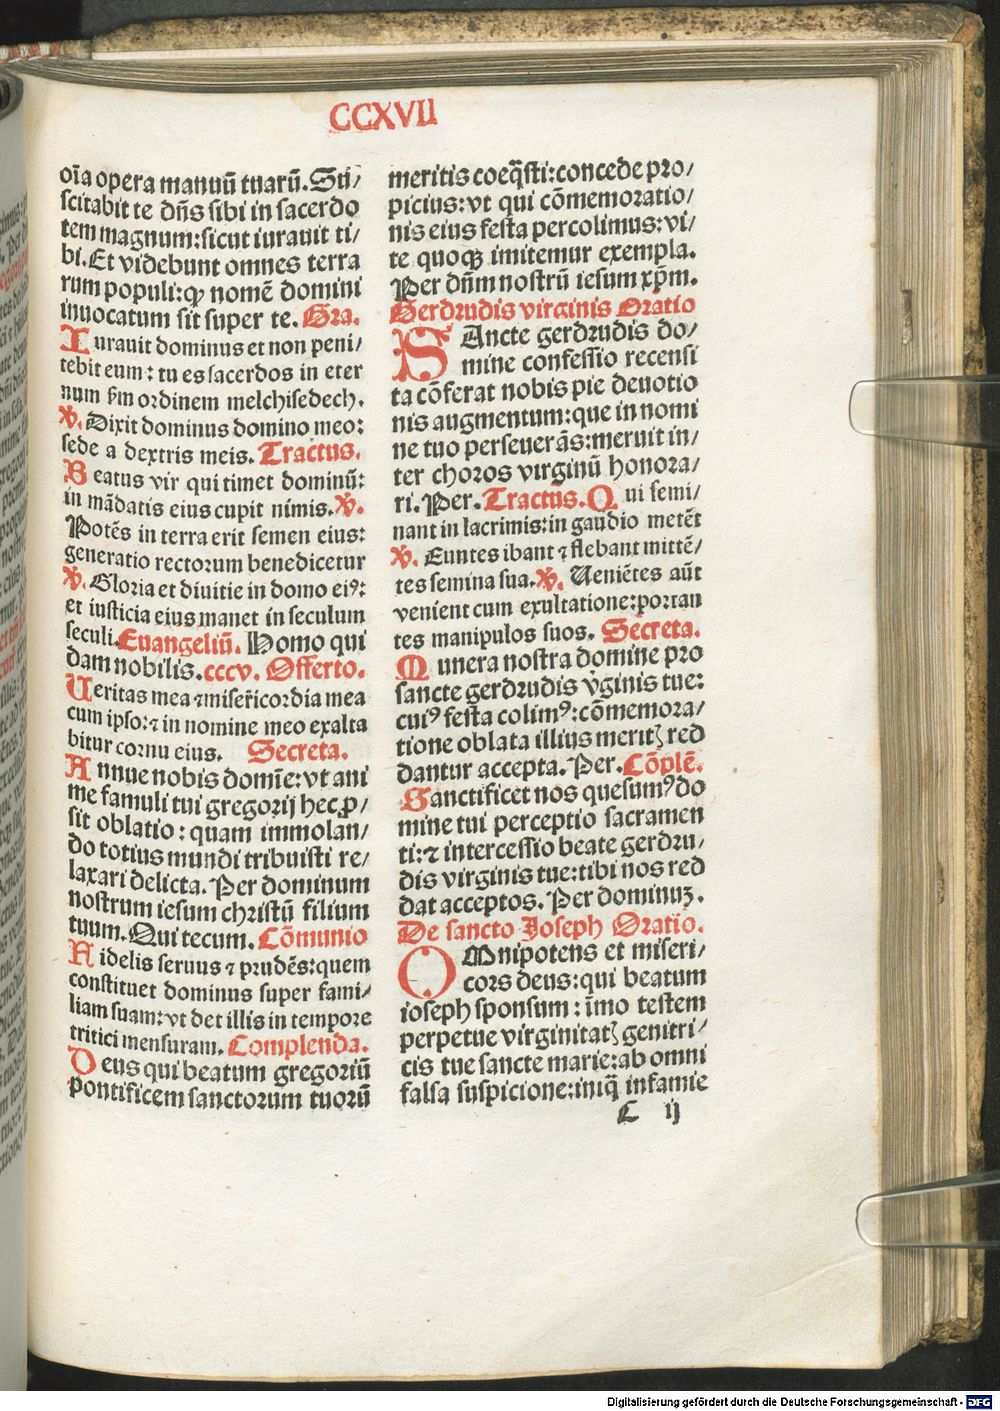 CCXVII
oīa opera manuū tuarū. Sti/
scitabit te dñs sibi in sacerdo
tem magnum: sicut iurauit ti/
bi. Et videbunt omnes terra
rum populi: qꝫ nomē domini
inuocatum sit super te. Gra.
Iurauit dominus et non peni/
tebit eum: tu es sacerdos in eter
num ẜm ordinem melchisedech.
℣. Dixit dominus domino meo:
sede a dextris meis. Tractus.
Beatus vir qui timet dominū:
in mādatis eius cupit nimis. ℣.
Potēs in terra erit semen eius:
generatio rectorum benedicetur
℣. Gloria et diuitie in domo eiꝰ:
et iusticia eius manet in seculum
seculi. Euangeliū. Homo qui
dam nobilis. cccv. Offerto.
Ueritas mea ⁊ miserīcordia mea
cum ipso: ⁊ in nomine meo exalta
bitur cornu eius. Secreta.
Annue nobis domīe: vt ani
me famuli tui gregorij hec ꝓ/
sit oblatio: quam immolan/
do totius mundi tribuisti re/
laxari delicta. Per dominum
nostrum iesum christū filium
tuum. Qui tecum. Cōmunio
Fidelis seruus ⁊ prudēs: quem
constituet dominus super fami/
liam suam: vt det illis in tempore
tritici mensuram. Complenda.
Deus qui beatum gregoriū
pontificem sanctorum tuorū
meritis coeq̄sti: concede pro/
picius: vt qui cōmemoratio/
nis eius festa percolimus: vi/
te quoqꝫ imitemur exempla.
Per dūm nostrū iesum xp̄m.
Gerdrudis virginis Oratio
SAncte gerdrudis do/
mine confessio recensi
ta cōferat nobis pie deuotio
nis augmentum: que in nomi
ne tuo perseuerās: meruit in/
ter choros virginū honora/
ri. Per. Tractus. Qui semi/
nant in lacrimis: in gaudio metēt
℣. Euntes ibant ⁊ flebant mittē/
tes semina sua. ℣. Ueniētes aūt
venient cum exultatione: portan
tes manipulos suos. Secreta.
Munera nostra domine pro
sancte gerdrudis v̓ginis tue:
cuiꝰ festa colimꝰ: cōmemora/
tione oblata illius meritꝭ red
dantur accepta. Per. Cōplē.
Sanctificet nos quesumꝰ do
mine tui perceptio sacramen
ti: ⁊ intercessio beate gerdru/
dis virginis tue: tibi nos red
dat acceptos. Per dominuꝫ.
De sancto Joseph Oratio.
OMnipotens et miseri/
cors deus: qui beatum
ioseph sponsum: īmo testem
perpetue virginitatꝭ genitri/
cis tue sancte marie: ab omni
falsa suspicione: iniq̄ infamie
C ij
Digitalisierung gefördert durch die Deutsche Forschungsgemeinschaft - DFG